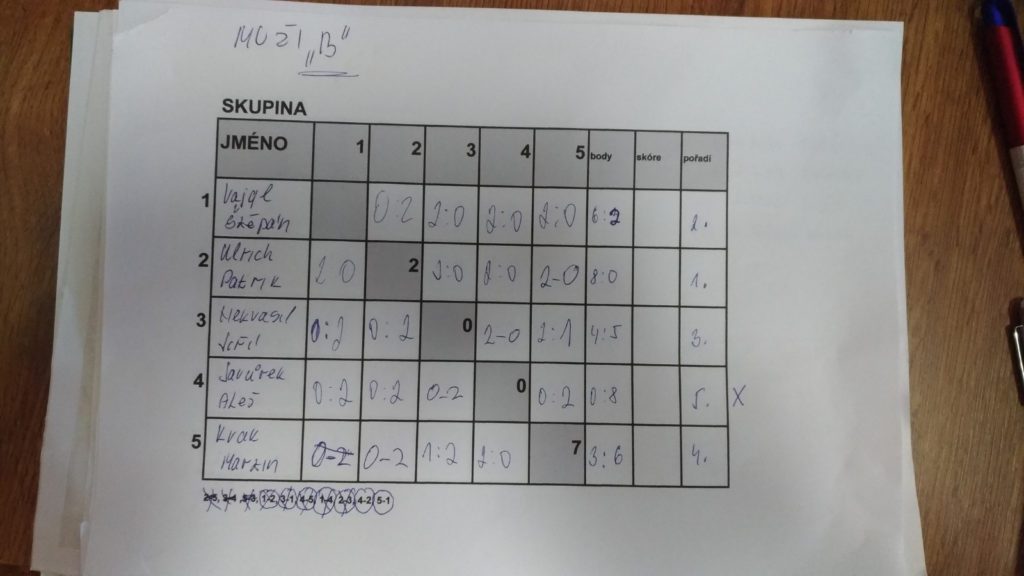 MUŽI
„B“
SKUPINA
JMÉNO 1 2 3 4 5 body skóre pořadí
1 Vajgl Štěpán 0:2 2:0 2:0 2:0 6:2 2.
2 Ulrich Patrik 2 0 2 2:0 2:0 2-0 8:0 1.
3 Nekvasil Jiří 0:2 0:2 0 2-0 2:1 4:5 3.
4 Javůrek Aleš 0:2 0:2 0-2 0 0:2 0:8 5. X
5 Kvak Martin 0-2 0-2 1:2 2:0 7 3:6 4.
2-5, 3-4, 5-3, 1-2, 3-1, 4-5, 1-4, 2-3, 4-2, 5-1